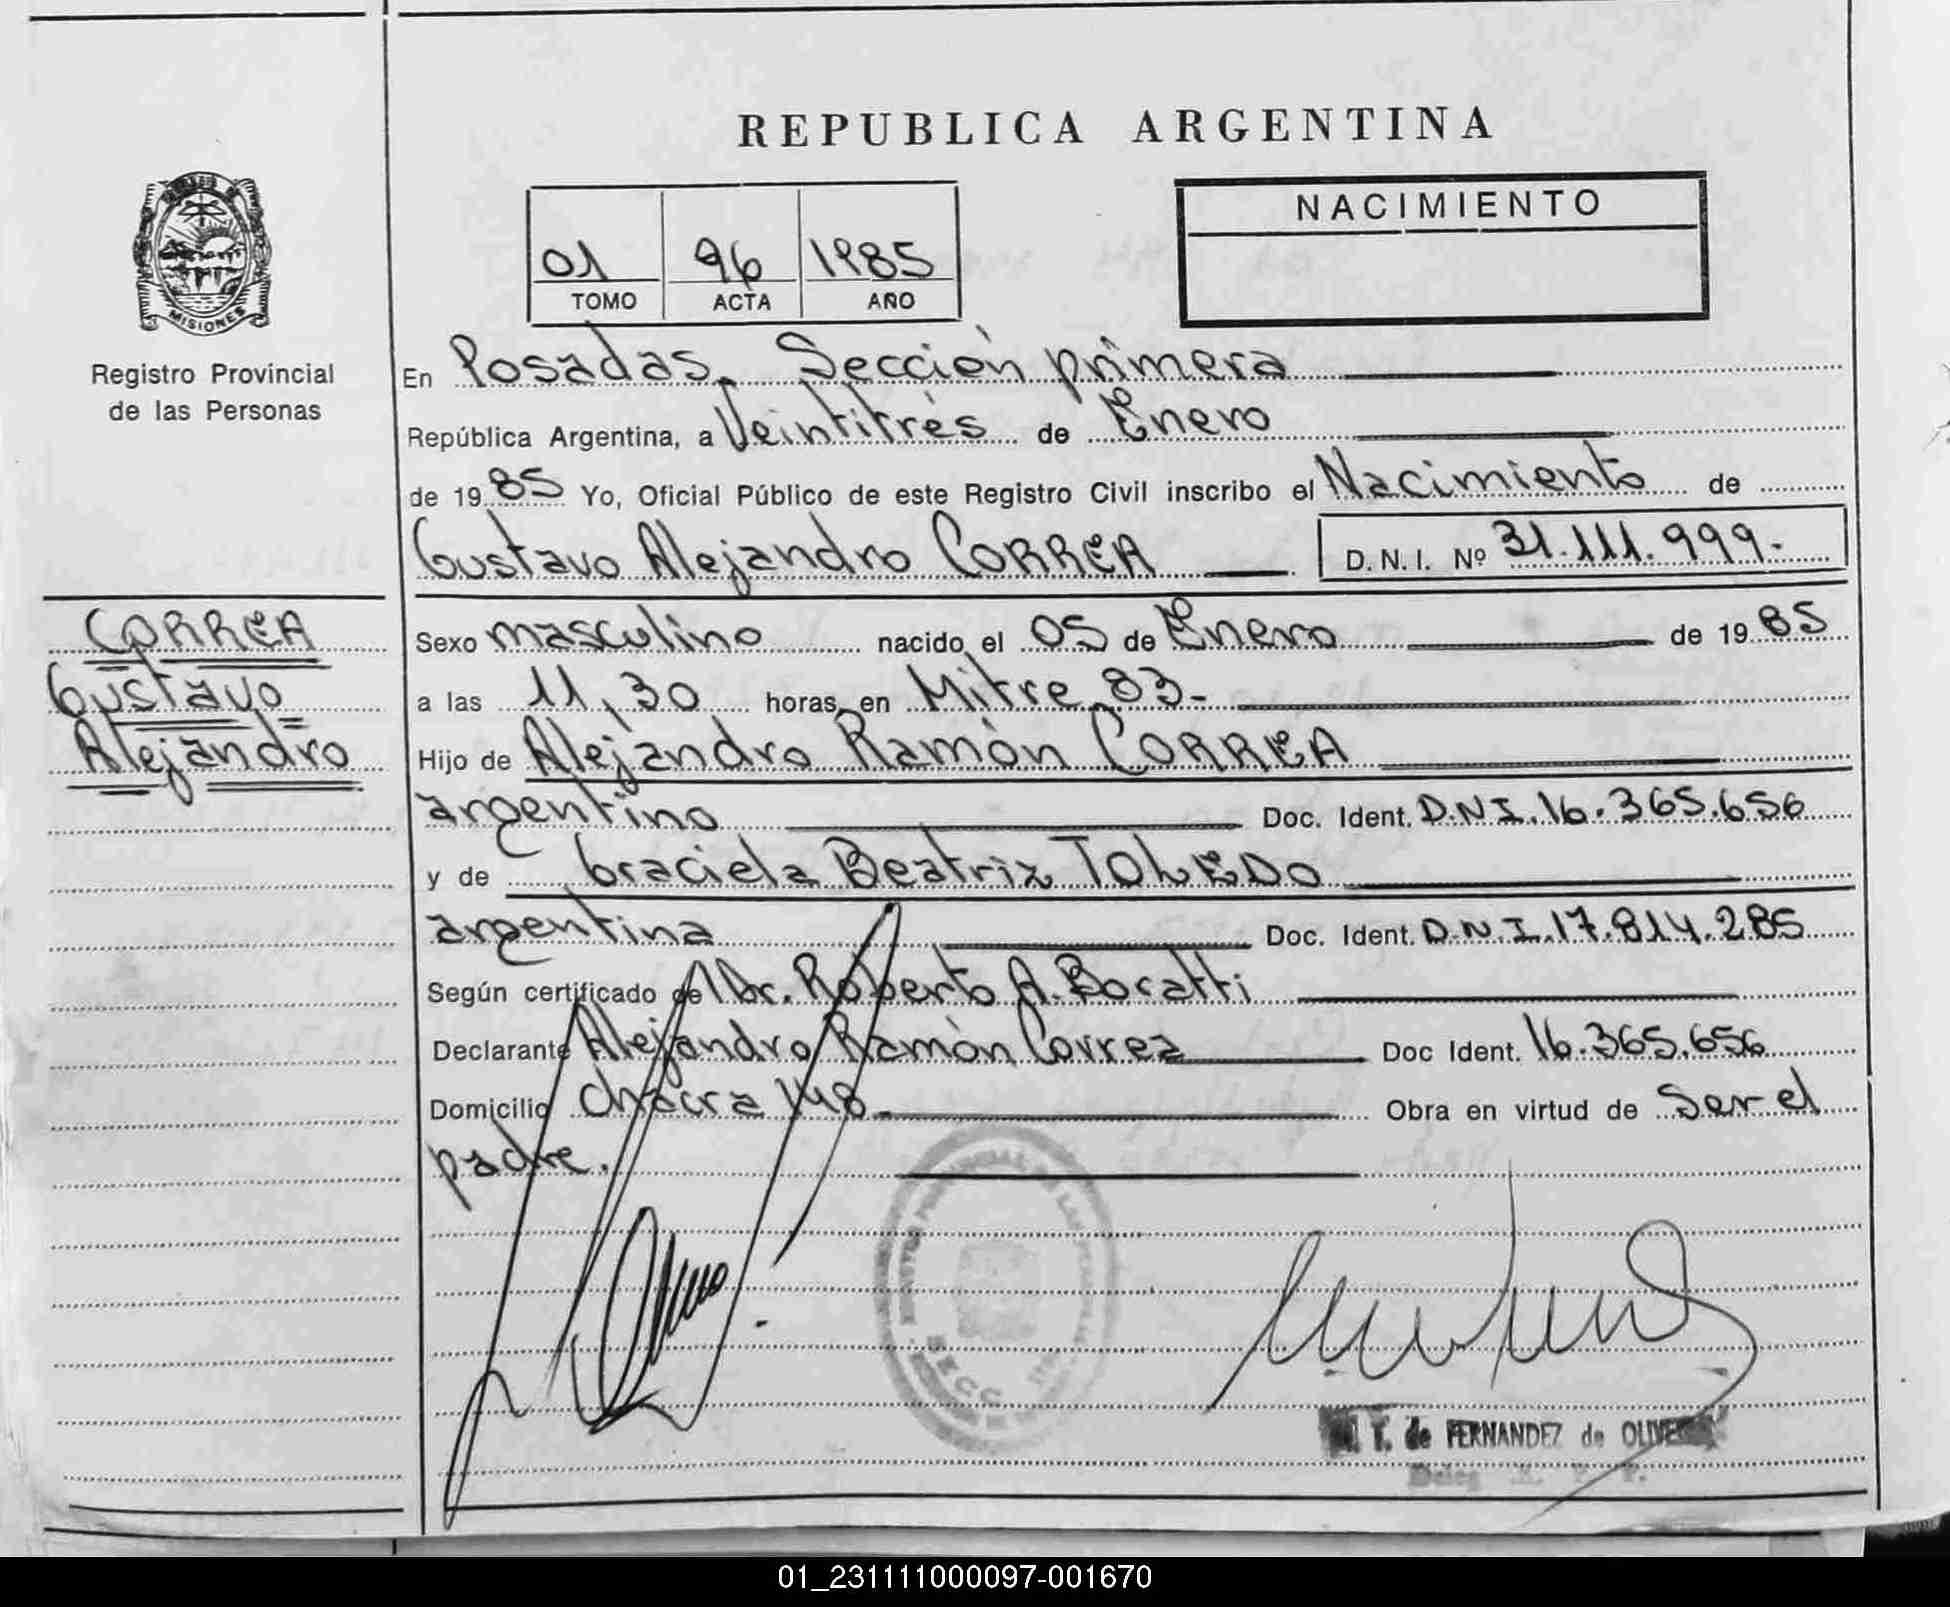 REPUBLICA ARGENTINA
MISIONES
Registro Provincial
de las Personas
01 96 1985
TOMO ACTA AÑO
NACIMIENTO
En Posadas. Sección primera
República Argentina, a Veintitrés de Enero
de 1985 Yo, Oficial Público de este Registro Civil inscribo el Nacimiento de
Gustavo Alejandro CORREA D.N.I. Nº 31.111.999.-
CORREA
Gustavo
Alejandro
Sexo masculino nacido el 05 de Enero de 1985
a las 11,30 horas en Mitre 83-
Hijo de Alejandro Ramón CORREA
argentino Doc. Ident. D.N.I. 16.365.656
y de Graciela Beatriz TOLEDO
argentina Doc. Ident. D.N.I. 17.814.285
Según certificado del Dr. Roberto A. Bocatti
Declarante Alejandro Ramón Correa Doc Ident. 16.365.656
Domicilio chacra 148. Obra en virtud de Ser el
padre.
SECC
T. de FERNANDEZ de
01_231111000097-001670